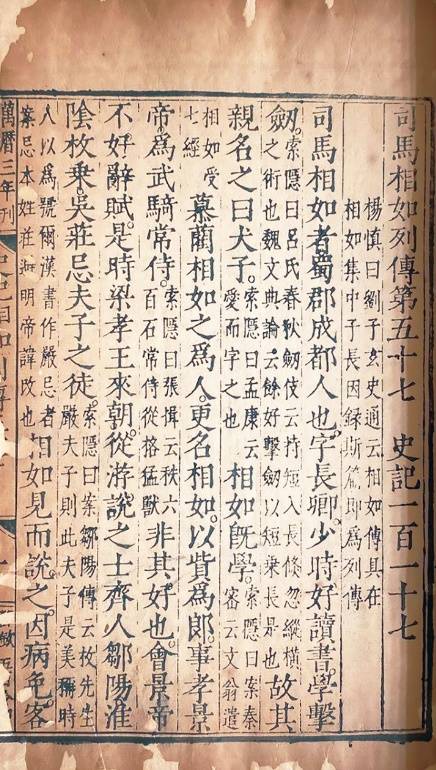 司馬相如列傳第五十七 史記一百一十七
楊慎曰劉子玄史通云相如傳具在
相如集中子長因録斯篇即爲列傳
司馬相如者蜀郡成都人也。字長卿。少時好讀書。學擊
劒。索隱曰呂氏春秋劒伎云持短入長倐忽縱橫之術也魏文典論云余好擊劒以短乘長是也故其
親名之曰犬子。索隱曰孟康云愛而字之也相如旣學。索隱曰案秦宻云文翁遣
相如受七經慕藺相如之爲人。更名相如。以貲爲郎。事孝景
帝。爲武騎常侍。索隱曰張揖云秩六百石常侍從格猛獸非其好也。會景帝
不好辭賦。是時梁孝王來朝。從游說之士齊人鄒陽淮
陰枚乘。吳莊忌夫子之徒。索隱曰案鄒陽傳云枚先生嚴夫子則此夫子是美稱時
人以爲號爾漢書作嚴忌者案忌本姓莊避明帝諱改也相如見而說之。因病免。客
萬曆三年刊